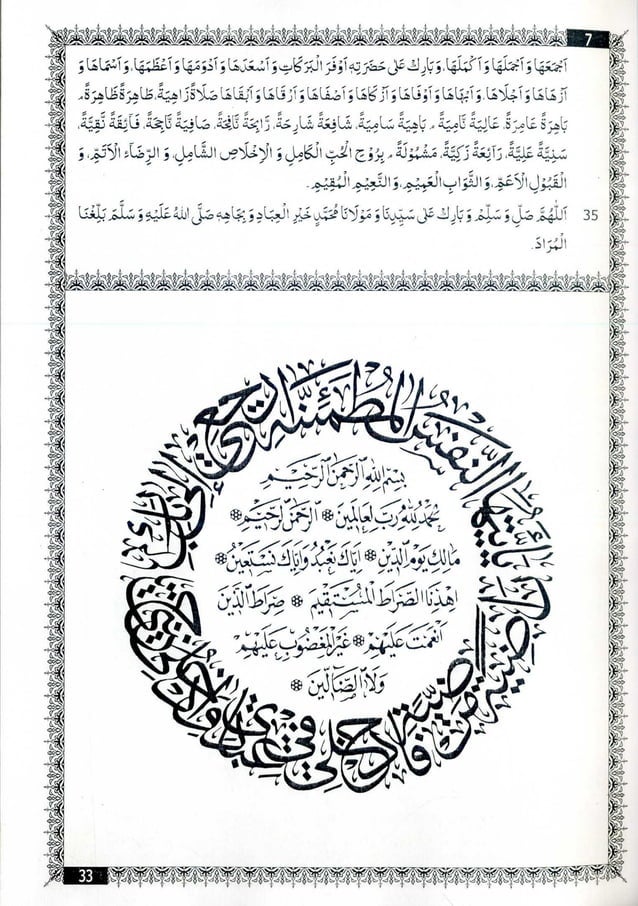 7
اَجْمَعَهَا وَ اَجْمَلَهَا وَ اَكْمَلَهَا، وَ بَارِكْ عَلٰى حَضْرَتِهٖ اَوْفَرَ الْبَرَكَاتِ وَ اَسْعَدَهَا وَ اَدْوَمَهَا وَ اَعْظَمَهَا، وَ اَسْمَاهَا وَ
اَزْهَاهَا وَ اَجْلَاهَا، وَ اَبْهَاهَا وَ اَوْفَاهَا وَ اَزْكَاهَا وَ اَصْفَاهَا وَ اَرْقَاهَا وَ اَبْقَاهَا صَلَاةً زَاهِيَةً، طَاهِرَةً ظَاهِرَةً،
بَاهِرَةً عَامِرَةً، عَالِيَةً نَامِيَةً، بَاهِيَةً سَامِيَةً، شَافِعَةً شَارِحَةً، رَابِحَةً نَافِحَةً، صَافِيَةً نَاجِحَةً، فَائِقَةً نَقِيَّةً،
سَنِيَّةً عَلِيَّةً، رَائِعَةً زَكِيَّةً، مَشْمُولَةً بِرُوْحِ الْحُبِّ الْكَامِلِ وَ الْاِخْلَاصِ الشَّامِلِ، وَ الرِّضَاءِ الْاَتَمِّ، وَ
الْقَبُوْلِ الْاَعَمِّ، وَ الثَّوَابِ الْعَمِيْمِ، وَ النَّعِيْمِ الْمُقِيْمِ.
35 اَللّٰهُمَّ صَلِّ وَ سَلِّمْ وَ بَارِكْ عَلٰى سَيِّدِنَا وَ مَوْلَانَا مُحَمَّدٍ خَيْرِ الْعِبَادِ وَ بِجَاهِهٖ صَلَّى اللهُ عَلَيْهِ وَ سَلَّمَ بَلِّغْنَا
الْمُرَادَ.
يا أيتها النفس المطمئنة ارجعي إلى ربك راضية مرضية فادخلي في عبادي وادخلي جنتي
بسم الله الرحمن الرحيم
الحمد لله رب العالمين ۞ الرحمن الرحيم ۞
مالك يوم الدين ۞ اياك نعبد واياك نستعين ۞
اهدنا الصراط المستقيم ۞ صراط الذين
انعمت عليهم ۞ غير المغضوب عليهم
ولا الضالين ۞
33